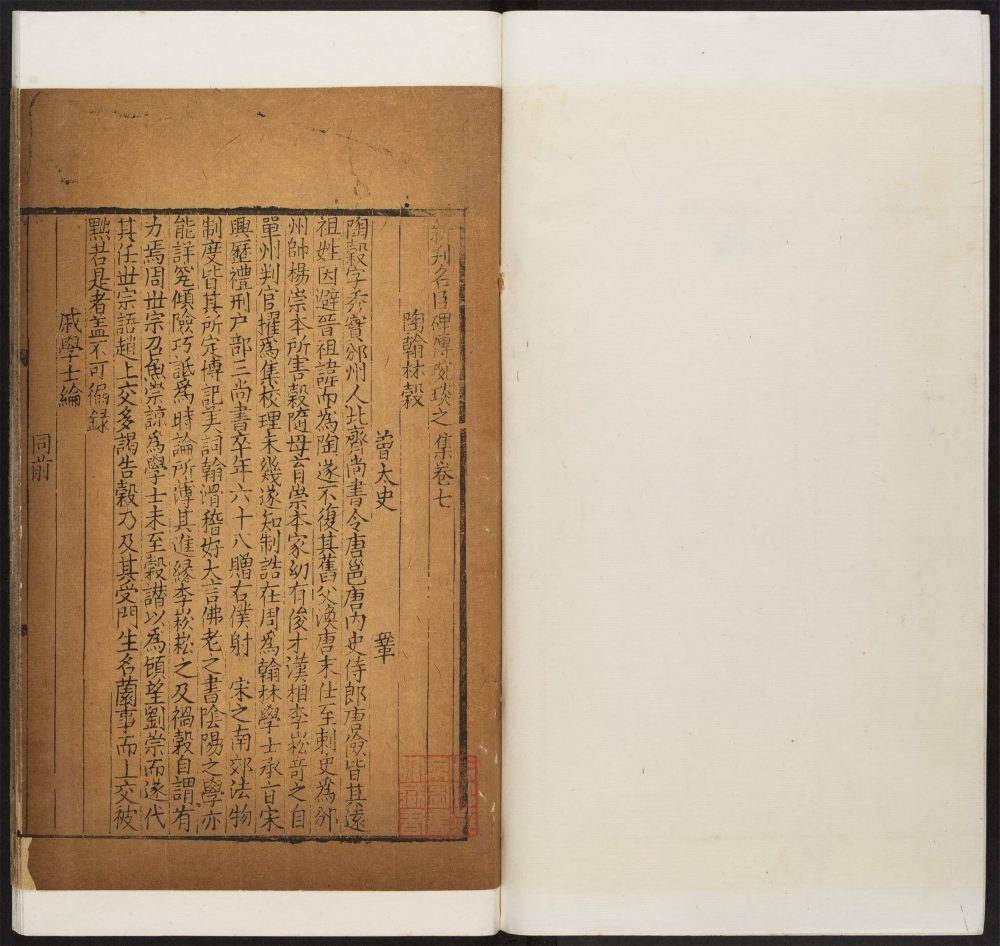 新刋名臣碑傳琬琰之 集卷七
陶翰林穀 曾太史 鞏
陶穀字秀實邠州人北齊尚書令唐邕唐内史侍郎唐儉皆其遠
祖姓因避晉祖諱而為陶遂不復其舊父渙唐末仕至刺史為邠
州帥楊崇本所害穀隨母育崇本家幼有俊才漢相李崧竒之自
單州判官擢為集校理未幾遂知制誥在周為翰林學士承旨宋
興歷禮刑户部三尚書卒年六十八贈右僕射 宋之南郊法物
制度皆其所定博記美詞翰滑稽好大言佛老之書陰陽之學亦
能詳究傾險巧詆為時論所薄其進緣李崧崧之及禍穀自謂有
力焉周世宗召魚崇諒為學士未至穀譖以為顧望劉崇而遂代
其任世宗語趙上交多謁告穀乃及其受門生名薗事而上交被
黜若是者盖不可徧録
戚學士綸
同前